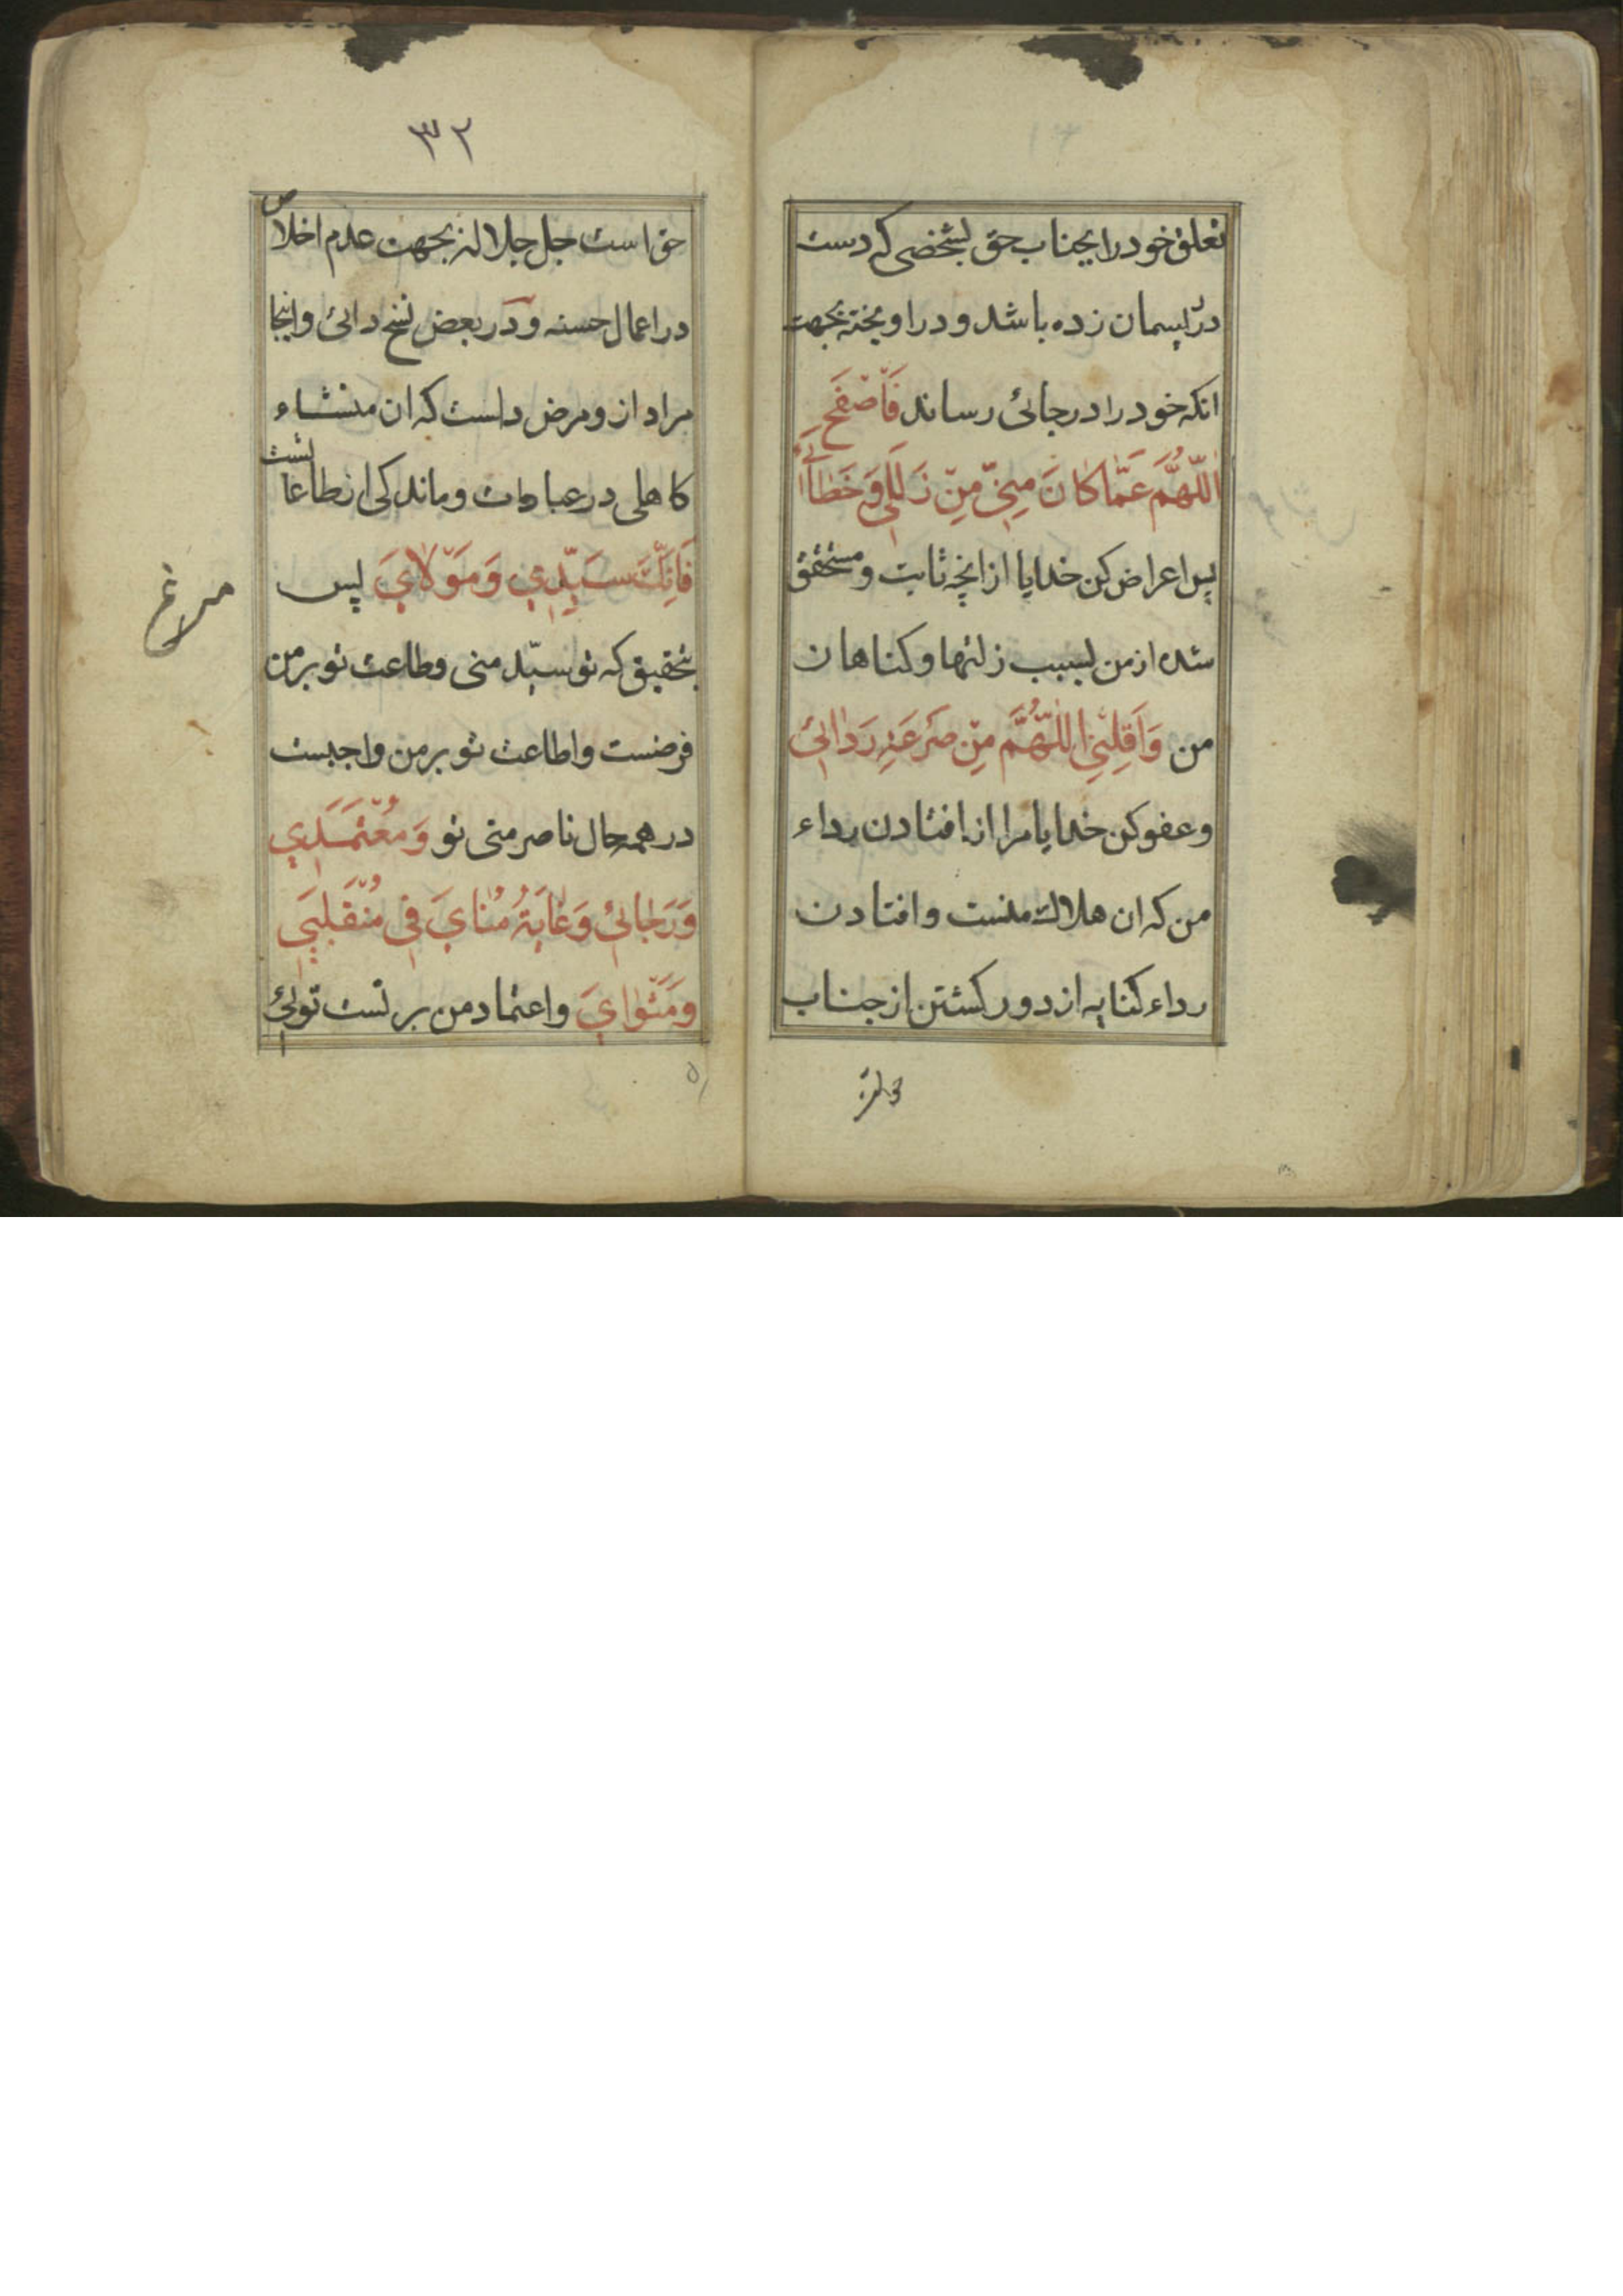 تعلق خود را بجناب حق بشخصی که دست
در ریسمان زده باشد و در اویخته بجهت
انکه خود را در جائی رساند فَاصْفَحِ
اللّٰهُمَّ عَمَّا كَانَ مِنِّي مِنْ زَلَلِي وَخَطَائِي
پس اعراض کن خدایا از انچه ثابت و متحقق
شده از من بسبب زلتها و کناهان
من وَاَقِلْنِي اللّٰهُمَّ مِنْ صَرْعَةِ رَدَائِي
و عفو کن خدایا مرا از افتادن رداء
من که ان هلاک منست و افتادن
رداء کنایه از دور کشتن از جناب
۳۲
حق است جل جلاله بجهت عدم اخلاص
در اعمال حسنه و در بعض نسخ دائی و اینجا
مراد از و مرض داست که ان منشاء
کاهلی در عبادات و ماندکی از طاعاتست
فَاِنَّكَ سَيِّدِي وَمَوْلَايَ پس
بتحقیق که تو سیّد منی و طاعت تو بر من
فرضست و اطاعت تو بر من واجبست
در همه حال ناصر منی تو وَمُعْتَمَدِي
وَرَجَائِي وَغَايَةُ مُنَايَ فِي مُنْقَلَبِي
وَمَثْوَايَ و اعتماد من بر تست توئی